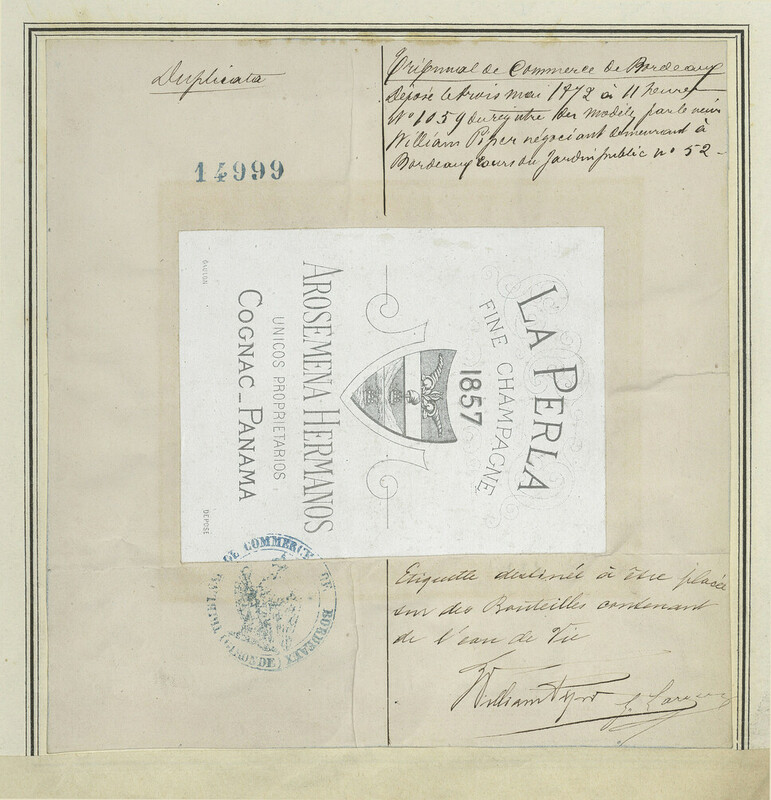 Duplicata
14999
Tribunal de Commerce de Bordeaux
Déposé le trois mai 1872 à 11 heures
N° 1059 du registre des modèles par le sieur
William Piper négociant demeurant à
Bordeaux cours du Jardin public n° 52
LA PERLA
FINE CHAMPAGNE
1857
AROSEMENA HERMANOS
UNICOS PROPRIETARIOS.
COGNAC_PANAMA
DEPOSE
COMMERCE DE BORDEAUX (GIRONDE)
Etiquette destinée à être placée
sur des Bouteilles contenant
de l'eau de Vie
William